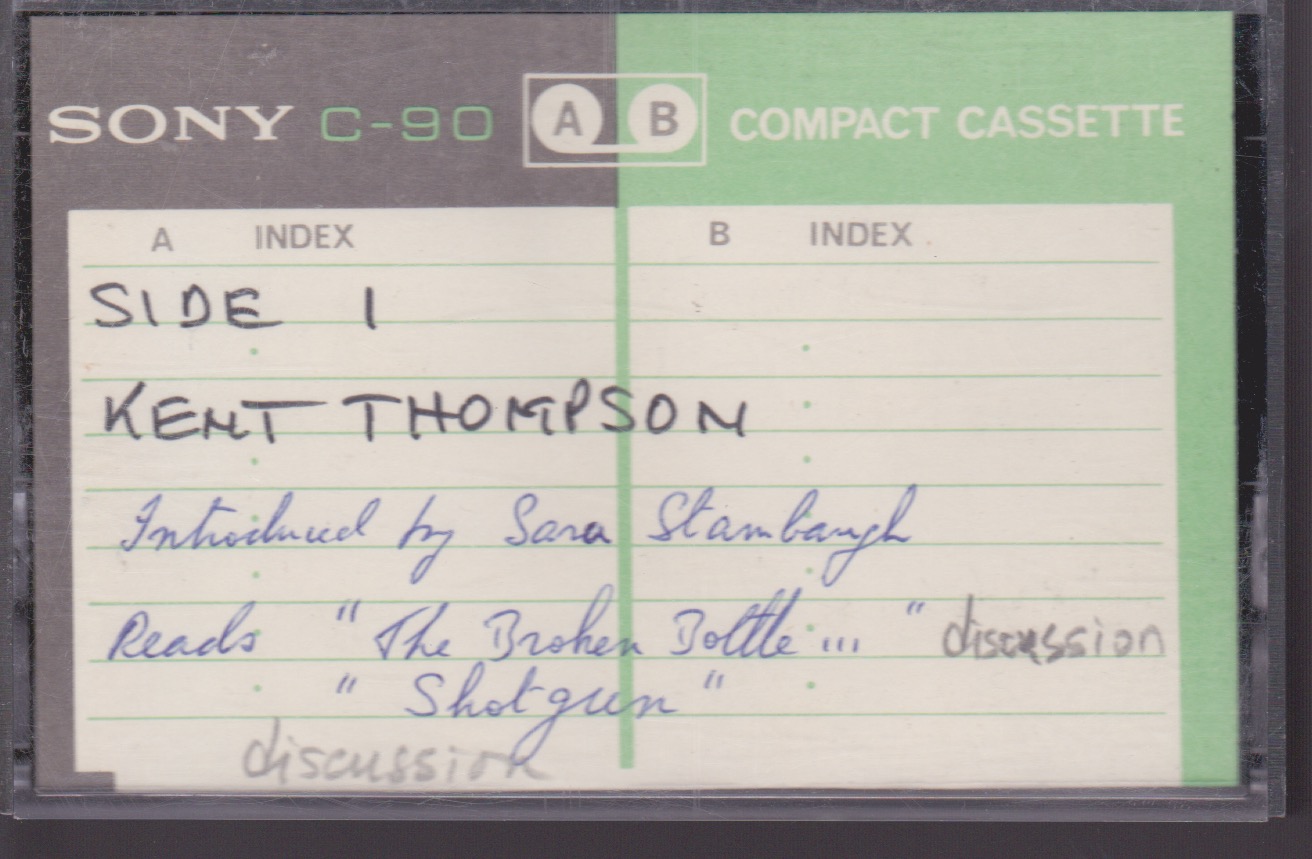 SONY C-90 A B COMPACT CASSETTE
A INDEX B INDEX
SIDE 1
KENT THOMPSON
Introduced by Sara Stambaugh
Reads "The Broken Bottle ..." discussion
"Shotgun"
discussion